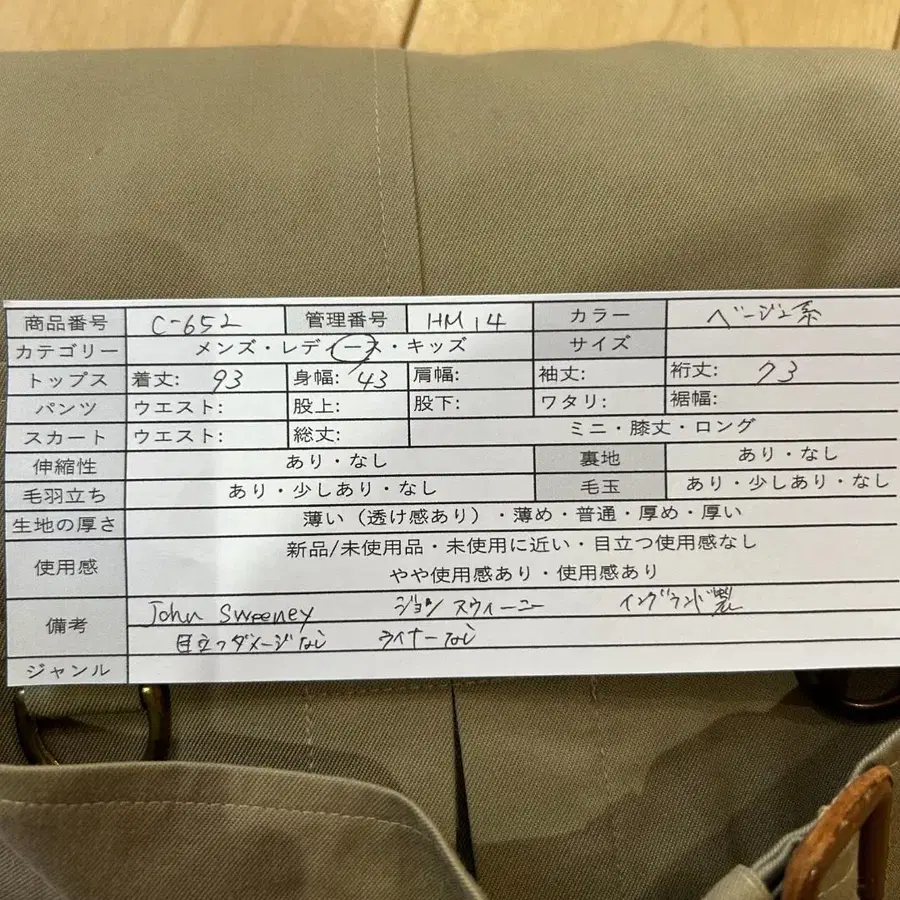 商品番号 C-652 管理番号 HM14 カラー ベージュ系
カテゴリー メンズ・レディース・キッズ サイズ
トップス 着丈: 93 身幅: 43 肩幅: 袖丈: 裄丈: 73
パンツ ウエスト: 股上: 股下: ワタリ: 裾幅:
スカート ウエスト: 総丈: ミニ・膝丈・ロング
伸縮性 あり・なし 裏地 あり・なし
毛羽立ち あり・少しあり・なし 毛玉 あり・少しあり・なし
生地の厚さ 薄い（透け感あり）・薄め・普通・厚め・厚い
使用感 新品/未使用品・未使用に近い・目立つ使用感なし
やや使用感あり・使用感あり
備考 John Sweeney ジョン スウィーニー イングランド製
目立つダメージなし ライナーなし
ジャンル